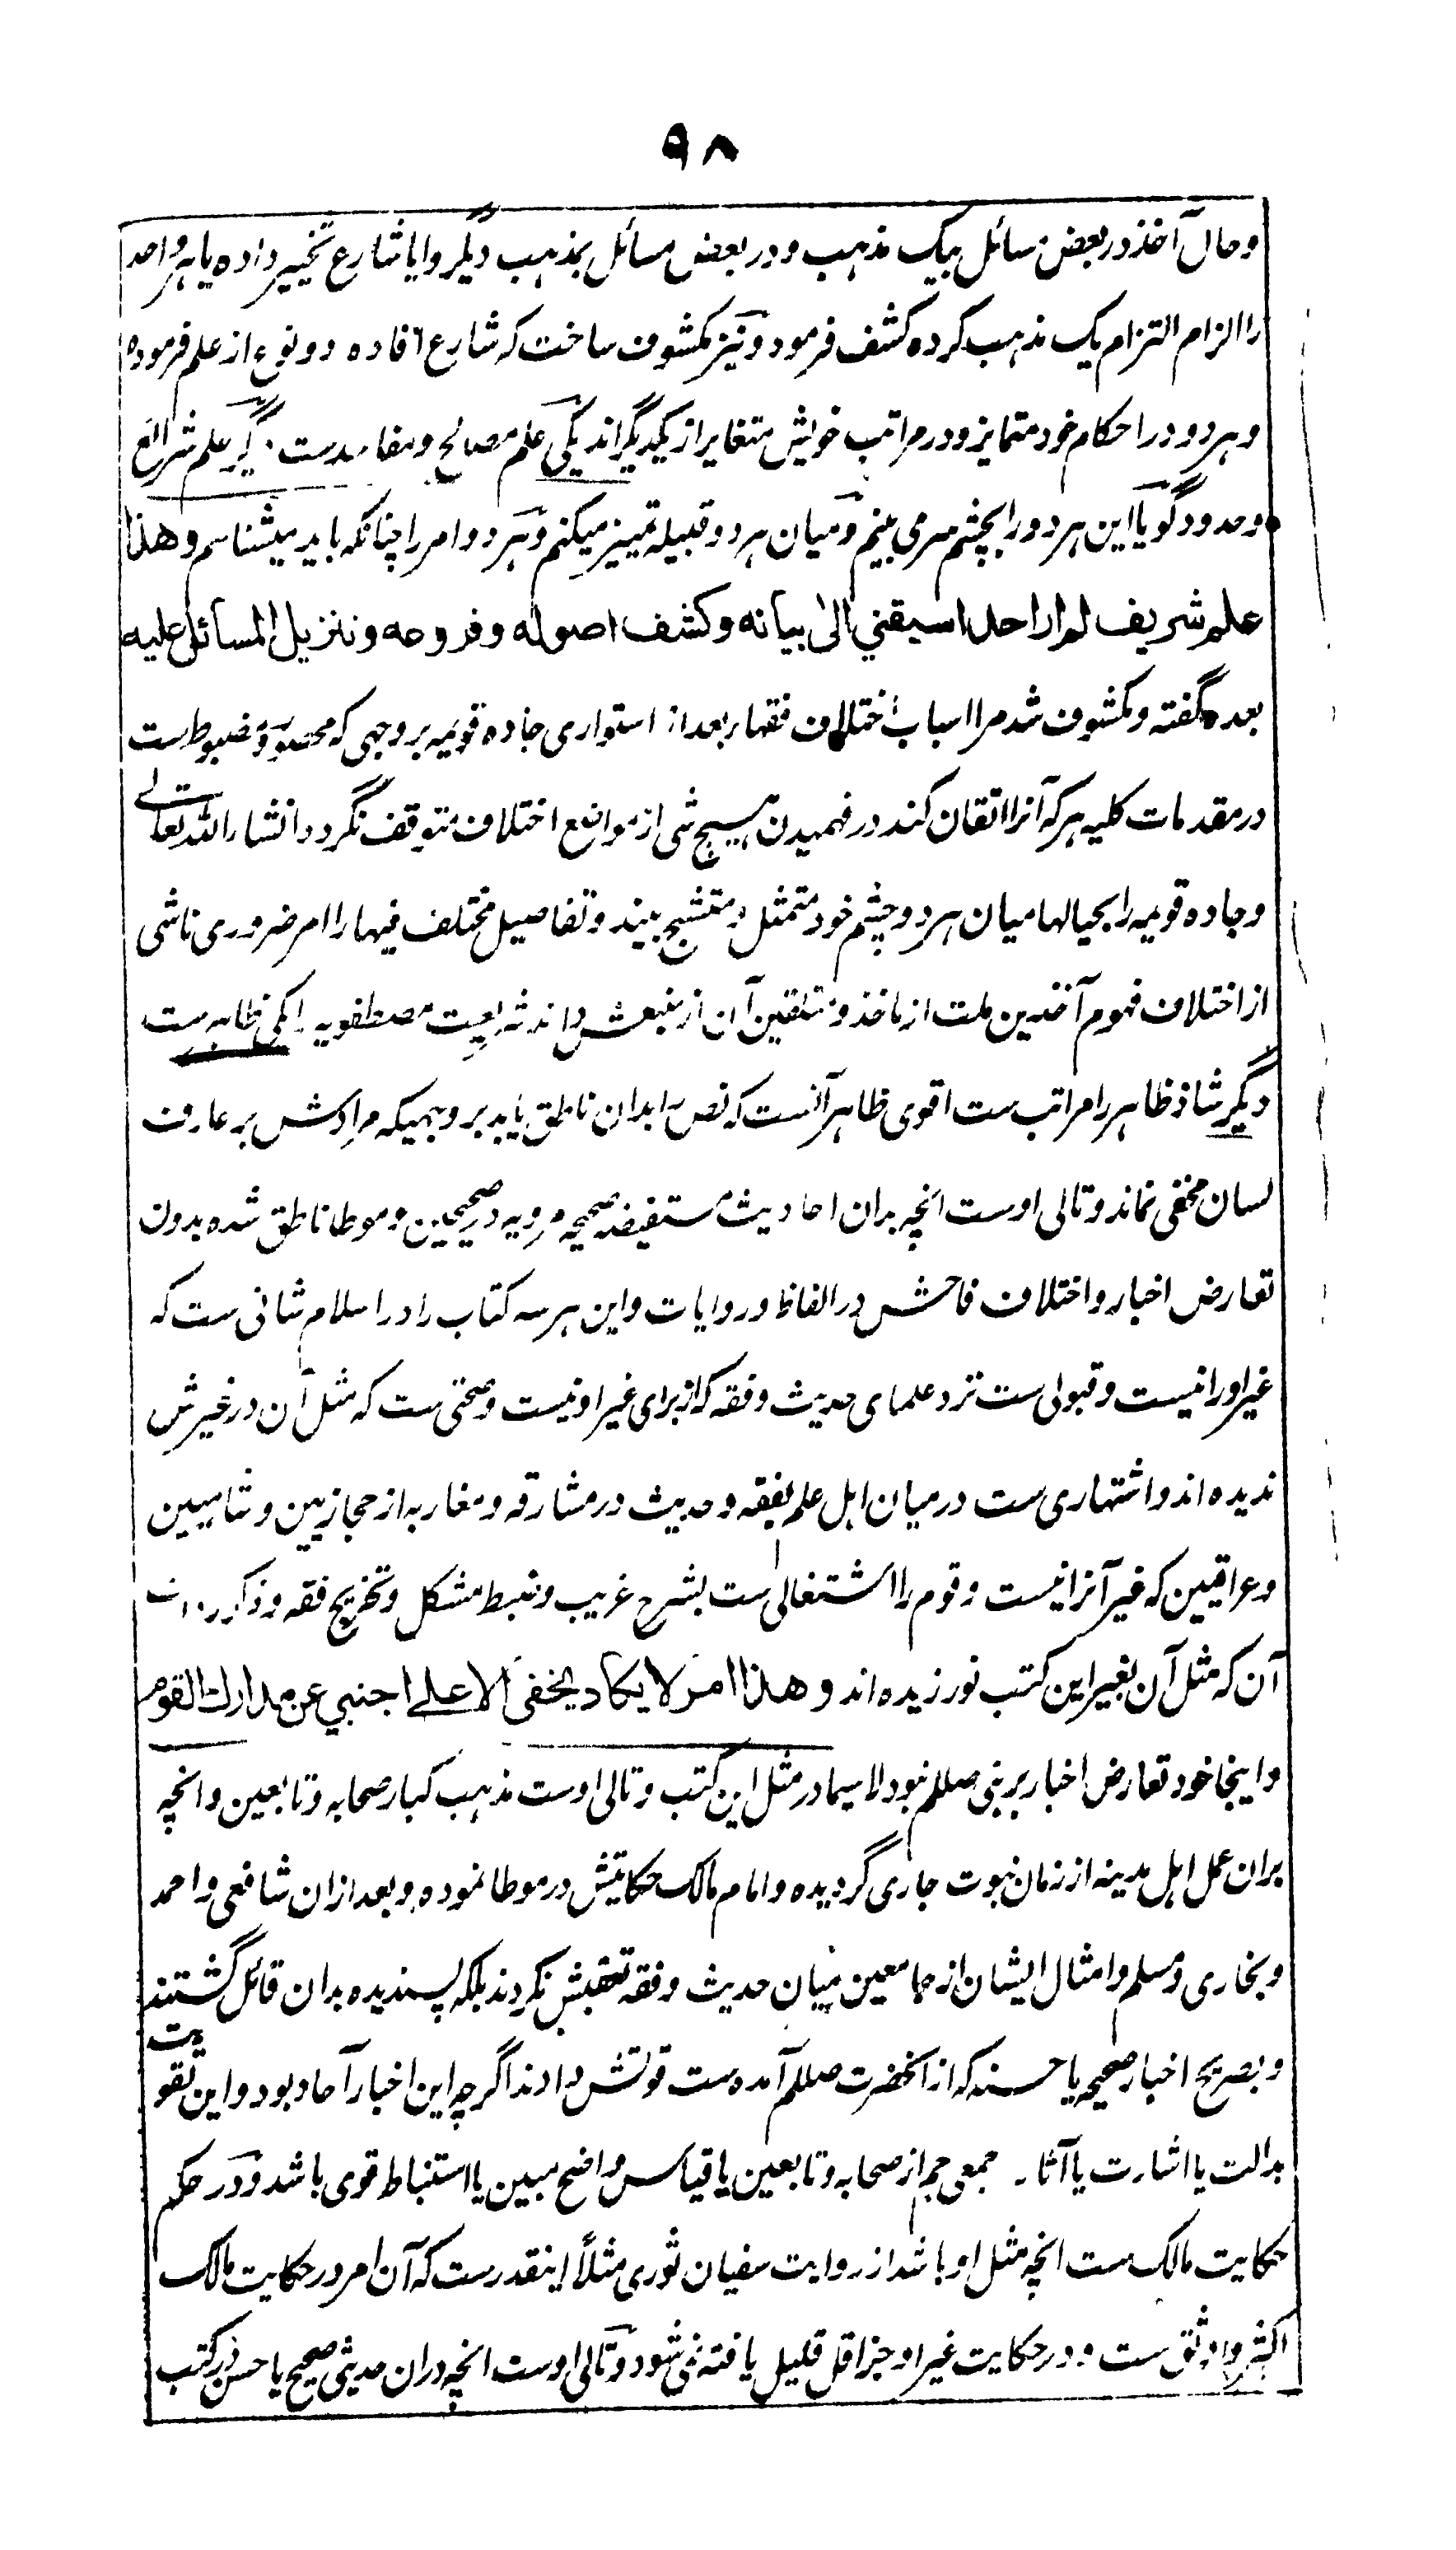 ۹۸
وحال آخذ در بعض مسائل بیک مذہب و در بعض مسائل بمذہب دیگر و ایا شارع تخییر داده یا ہر واحد
را الزام التزام یک مذہب کرده کشف فرمود و نیز مکشوف ساخت کہ شارع افاده دو نوع از علم فرموده
و ہر دو در احکام خود متمایز و در مراتب خویش متغایر از یکدیگر اند یکی علم مصالح و مفاسدست دیگر علم شرائع
وحدود گویا این ہر دو را بچشم سر می بینم و میان ہر دو قبیلہ تمییز میکنم و ہر دو امر را چنانکہ باید میشناسم وهذا
علم شریف لم ار احدا سبقني الی بیانه وکشف اصوله وفروعه وتنزیل المسائل علیه
بعده گفتہ و مکشوف شد مرا اسباب اختلاف فقہا بعد از استواری جاده قویمہ بر وجہی کہ محصور و مضبوط ست
در مقدمات کلیہ ہر کہ آنرا اتقان کند در فہمیدن ہیچ شی از مواضع اختلاف متوقف نگردد انشاء اللہ تعالے
وجاده قویمہ را بحیالہا میان ہر دو چشم خود متمثل و متشبح بیند و تفاصیل مختلف فیہا را امر ضروری ناشی
از اختلاف فہوم آخذین ملت از ماخذ و متلقین آن از منبعش داند شریعت مصطفویہ یکی ظاہرست
دیگر شاذ ظاہر را مراتب ست اقوی ظاہر آنست کہ نص بدان ناطق باید بر وجہیکہ مرادش بر عارف
لسان مخفی نماند و تالی اوست انچہ بران احادیث مستفیضہ صحیحہ مرویہ در صحیحین و موطا ناطق شده بدون
تعارض اخبار و اختلاف فاحش در الفاظ و روایات و این ہر سہ کتاب را در اسلام شانی ست کہ
غیر او را نیست و قبولی ست نزد علمای حدیث و فقہ کہ از برای غیر او نیست و صحتی ست کہ مثل آن در غیرش
ندیده اند و اشتہاری ست درمیان اہل علم بفقہ و حدیث در مشارقہ و مغاربہ از حجازیین و شامیین
و عراقیین کہ غیر آنرا نیست و قوم را اشتغالی ست بشرح غریب و ضبط مشکل و تخریج فقہ و ذکر
آن کہ مثل آن بغیر این کتب نورزیده اند وهذا امر لا یکاد یخفی الا علے اجنبي عن مدارك القوم
و اینجا خود تعارض اخبار بر نبی صللم نبود لاسیما در مثل این کتب و تالی اوست مذہب کبار صحابہ و تابعین و انچہ
بران عمل اہل مدینہ از زمان نبوت جاری گردیده و امام مالک حکایتش در موطا نموده و بعد ازان شافعی و احمد
و بخاری و مسلم و امثال ایشان از جامعین میان حدیث و فقہ تعقبش نکردند بلکہ پسندیده بدان قائل گشتند
و بصریح اخبار صحیحہ یا حسنہ کہ از آنحضرت صللم آمده ست قوتش دادند اگرچہ این اخبار آحاد بود و این تقویت
بدلالت یا اشارت یا آثار جمعی جم از صحابہ و تابعین یا قیاس واضح مبین یا استنباط قوی باشد و در حکم
حکایت مالک ست انچہ مثل او باشد از روایت سفیان ثوری مثلاً اینقدرست کہ آن امر در حکایت مالک
اکثر و اوثق ست و در حکایت غیر او جز اقل قلیل یافتہ نمی شود و تالی اوست انچہ دران حدیثی صحیح یا حسن در کتب